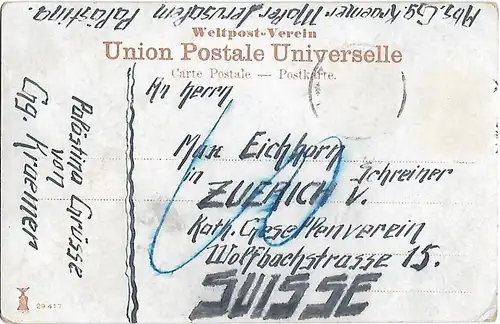 Abs. Chg. Kraemer Maler Jerusalem Palästina
Weltpost-Verein
Union Postale Universelle
Carte Postale — Postkarte.
An Herrn
Max Eichhorn
Schreiner
in
ZUERICH V.
Kath. Gesellenverein
Wolfbachstrasse 15.
SUISSE
Palästina Grüsse
von
Chg. Kraemer
29417